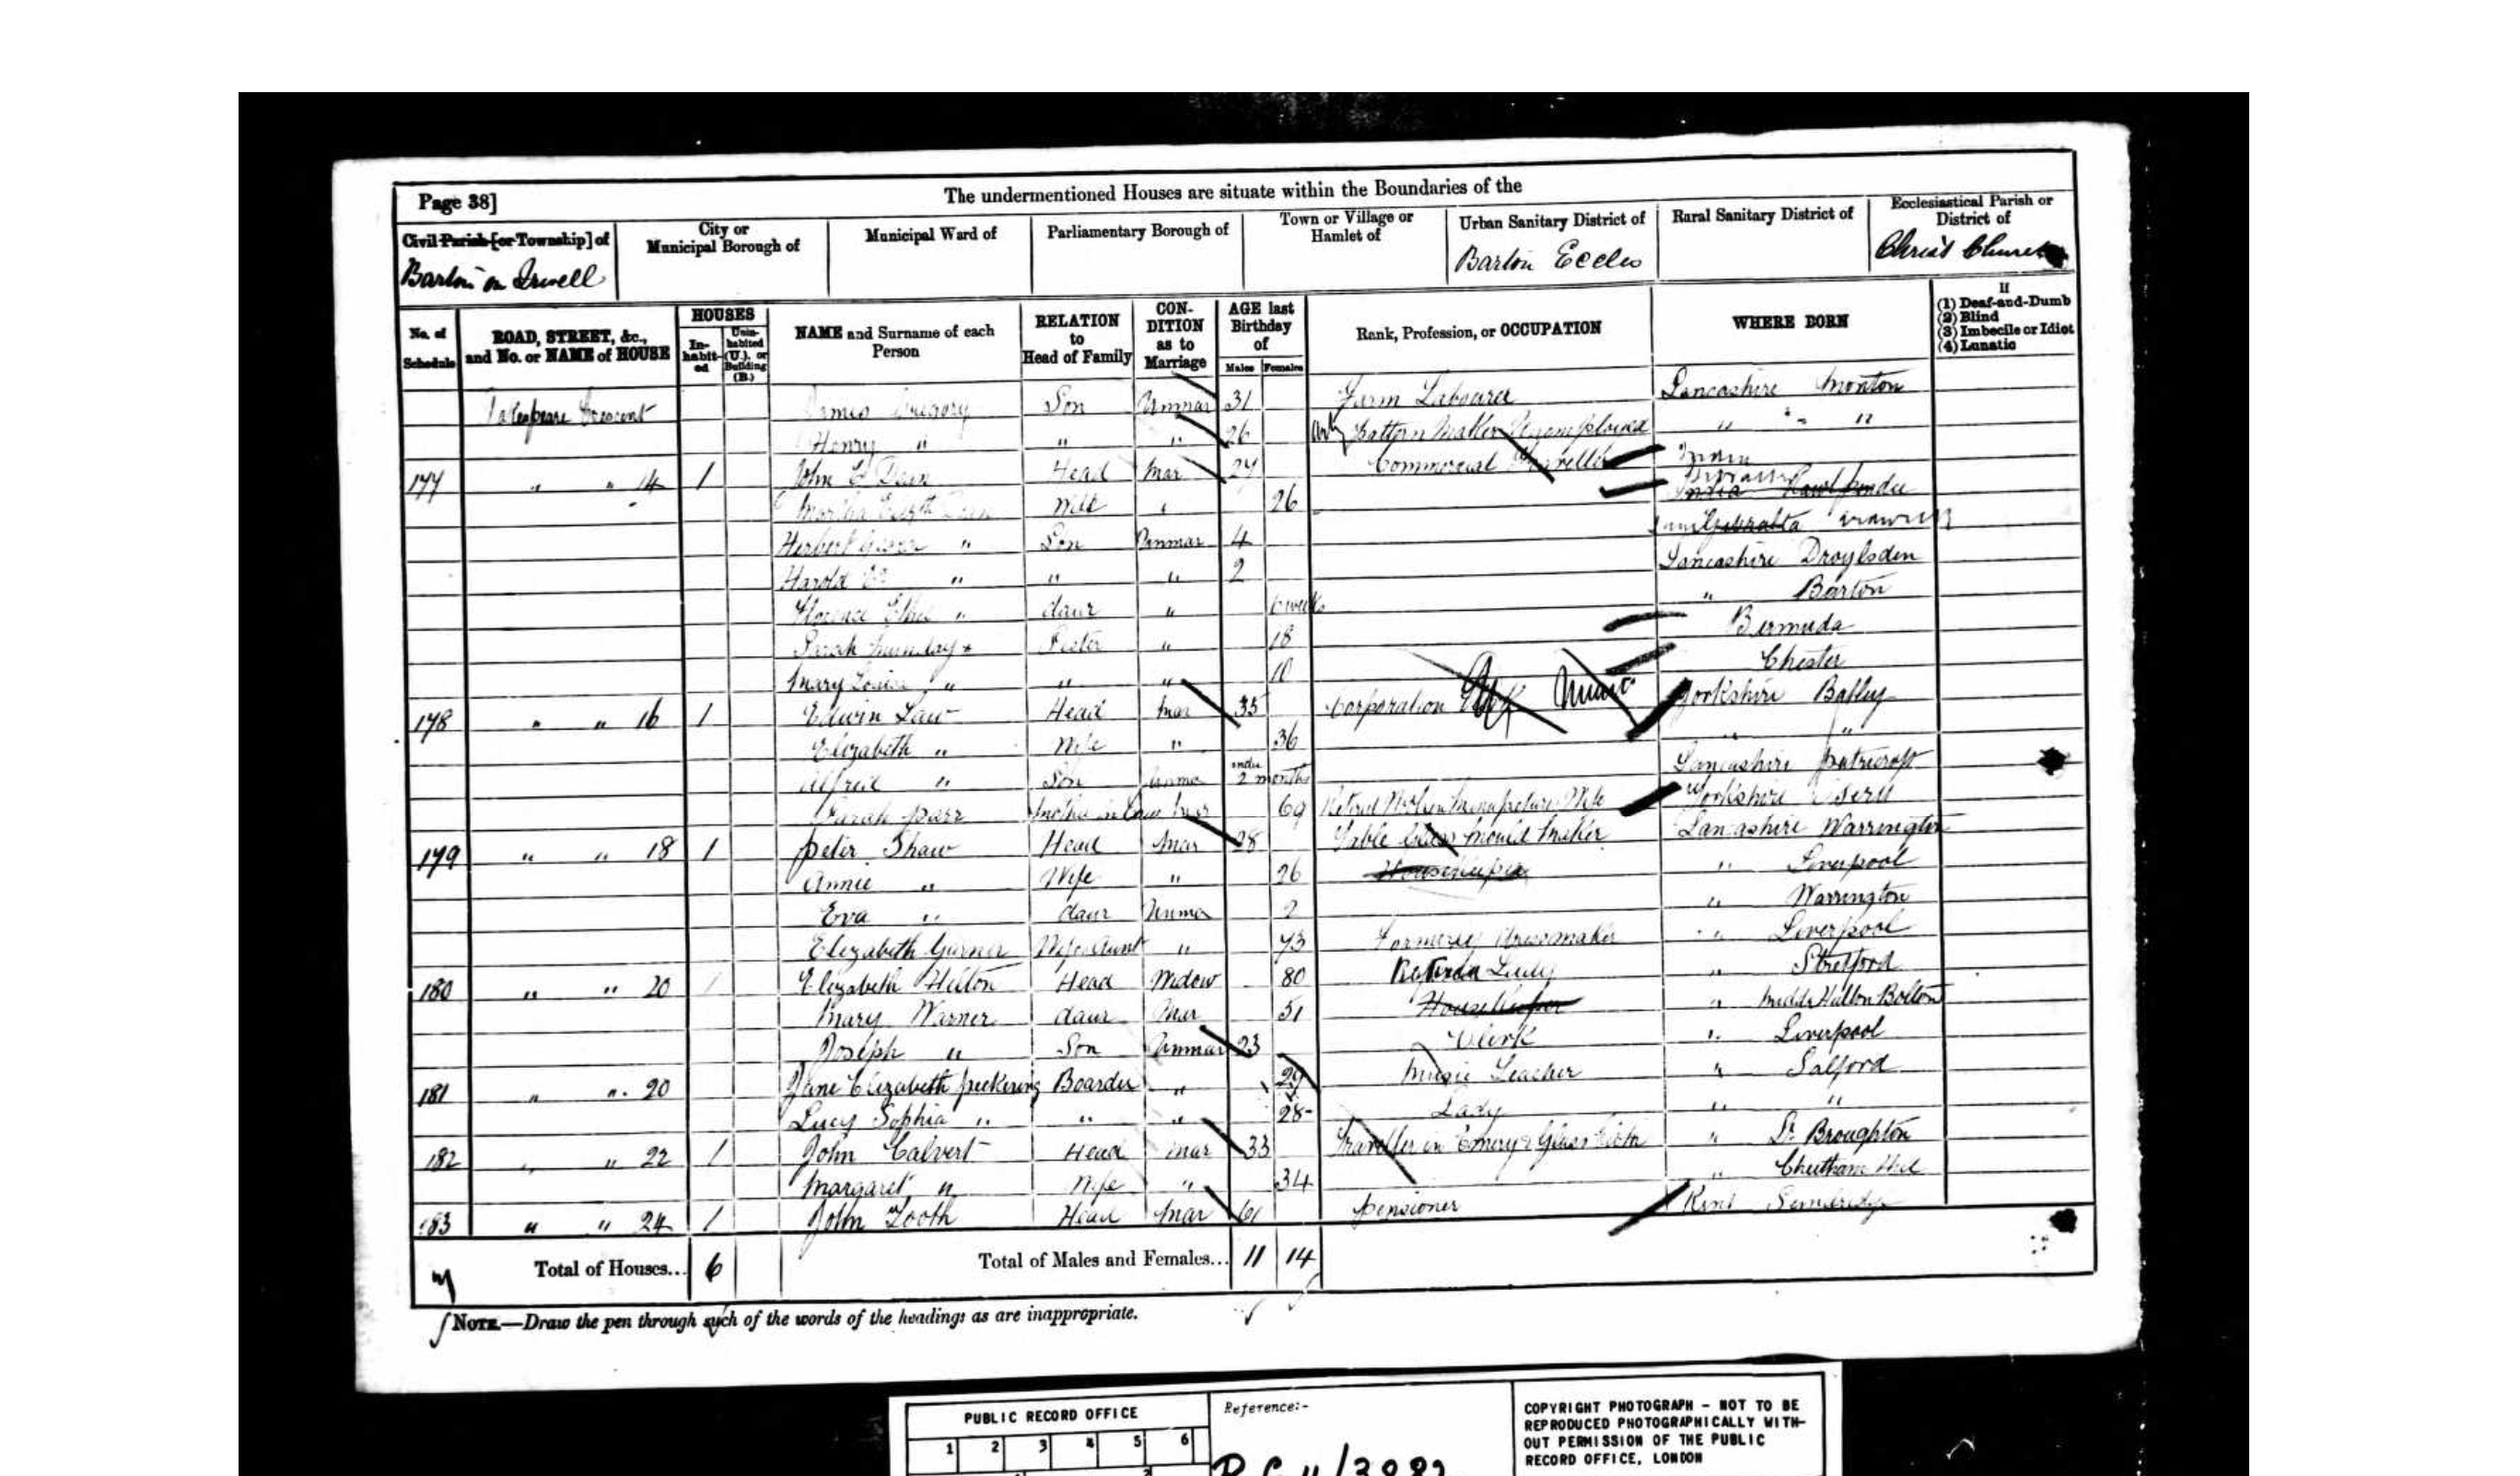 Page 38]
The undermentioned Houses are situate within the Boundaries of the
Civil Parish [or Township] of
Barton on Irwell
City or Municipal Borough of
Municipal Ward of
Parliamentary Borough of
Town or Village or Hamlet of
Urban Sanitary District of
Barton Eccles
Rural Sanitary District of
Ecclesiastical Parish or District of
Christ Church
No. of Schedule
ROAD, STREET, &c., and No. or NAME of HOUSE
HOUSES
In-habit-ed
Unin-habited (U.), or Building (B.)
NAME and Surname of each Person
RELATION to Head of Family
CON-DITION as to Marriage
AGE last Birthday of
Males
Females
Rank, Profession, or OCCUPATION
WHERE BORN
If
(1) Deaf-and-Dumb
(2) Blind
(3) Imbecile or Idiot
(4) Lunatic
Crescent James Gregory Son Unmar 31 Farm Labourer Lancashire Monton
Henry " " " 26 Pattern Maker Unemployed " " "
177 " " 14 1 John E Dean Head Mar 27 Commercial Traveller
Martha Dean Wife " 26 India
Herbert " Son Unmar 4
Harold " " " 2 Lancashire Droylsden
Florence " daur " 6 weeks " Barton
Sarah " 18 Bermuda
Mary " " " 10 Chester
178 " " 16 1 Edwin Law Head Mar 35 Corporation Yorkshire Batley
Elizabeth " Wife " 36 " "
Alfred " Son Unmar under 2 months Lancashire Patricroft
Sarah mother in law 69 Retired Wife Yorkshire
179 " " 18 1 Peter Shaw Head Mar 28 Table Glass Mould Maker Lancashire Warrington
Annie " Wife " 26 Housekeeper " Liverpool
Eva " daur Unmar 2 " Warrington
Elizabeth Garner Wifes Aunt " 73 Formerly Dressmaker " Liverpool
180 " " 20 1 Elizabeth Hilton Head Widow 80 Lady " Stretford
Mary Warner daur Mar 51 Housekeeper " Hulton Bolton
Joseph " Son Unmar 23 Clerk " Liverpool
181 " " 20 Jane Elizabeth Pickering Boarder " 29 Music Teacher " Salford
Lucy Sophia " " " 28 Lady " "
182 " " 22 1 John Calvert Head Mar 33 Traveller in Emery & Glass Cloth " Lr Broughton
Margaret " Wife " 34 " Cheetham Hill
183 " " 24 1 John Tooth Head Mar 61 Pensioner Kent
Total of Houses... 6 Total of Males and Females... 11 14
NOTE.—Draw the pen through such of the words of the headings as are inappropriate.
PUBLIC RECORD OFFICE
1 2 3 4 5 6
Reference:-
COPYRIGHT PHOTOGRAPH - NOT TO BE
REPRODUCED PHOTOGRAPHICALLY WITH-
OUT PERMISSION OF THE PUBLIC
RECORD OFFICE, LONDON